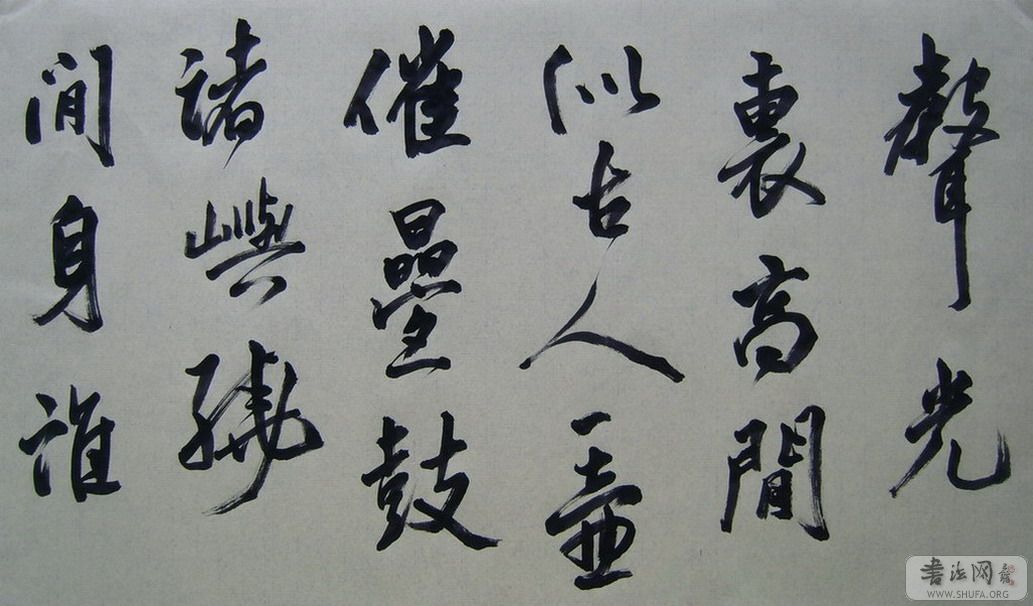 聲光
裏高閒
似古人一壺
催疊鼓
諸嶼繞
閒身誰
書法网
WWW.SHUFA.ORG